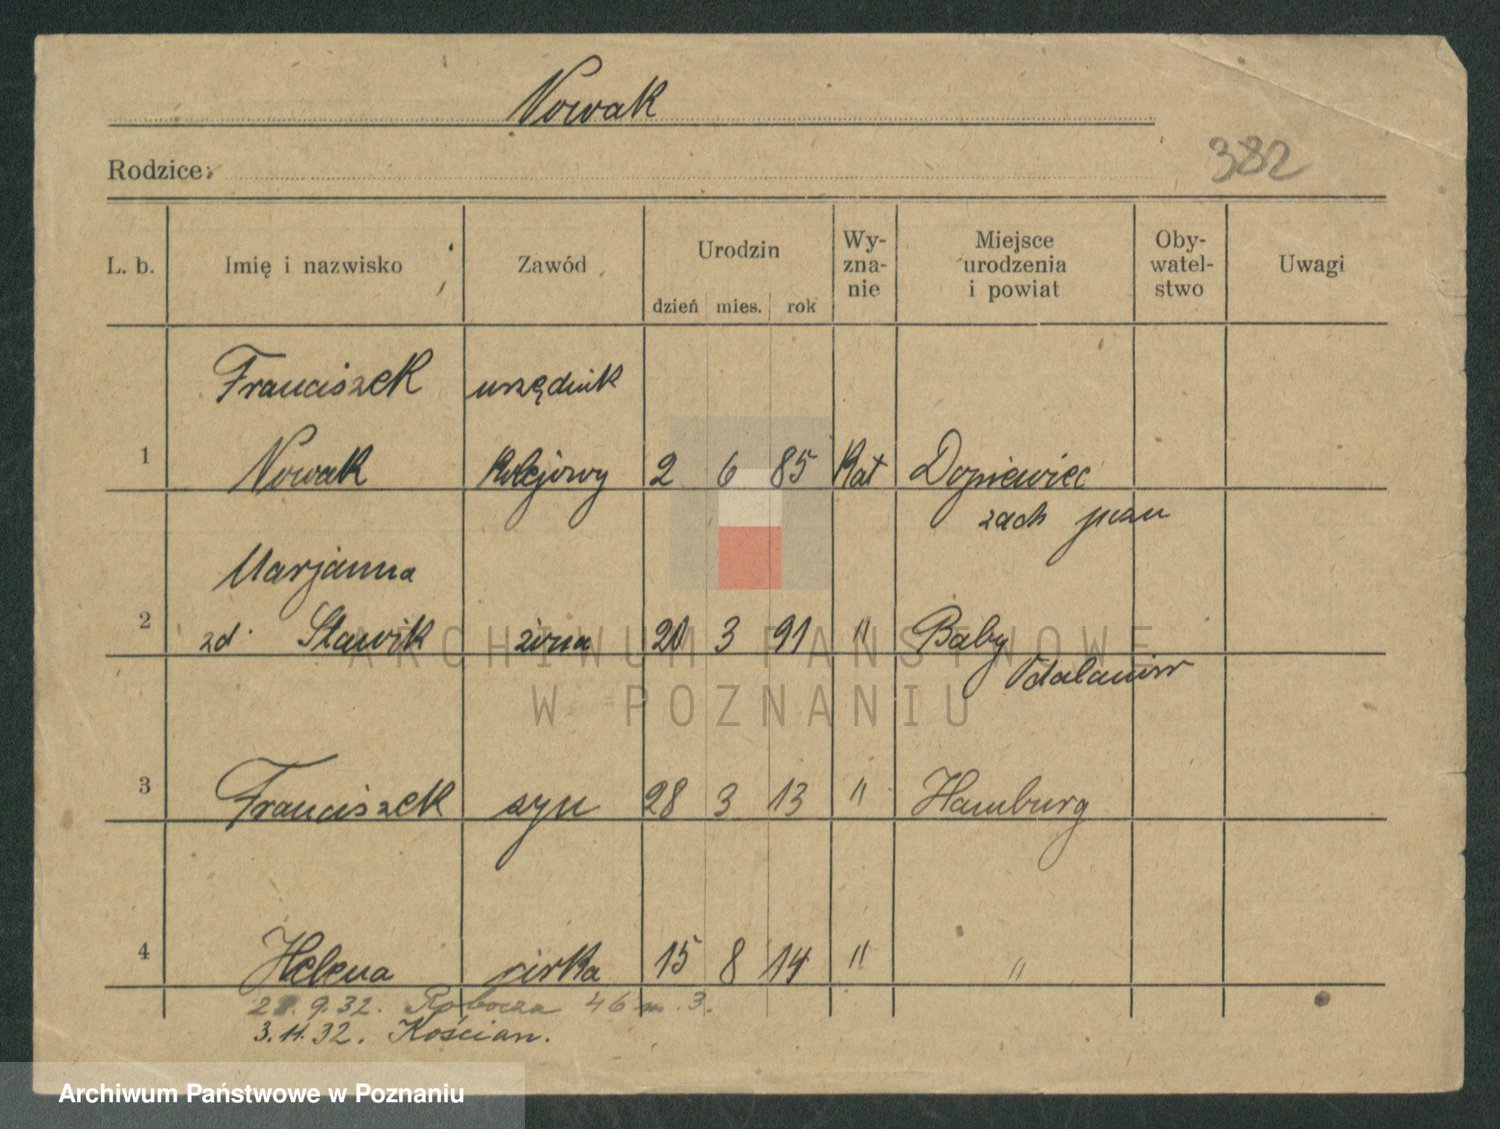 Nowak
Rodzice:
382
L. b.
Imię i nazwisko
Zawód
Urodzin
dzień mies. rok
Wy-
zna-
nie
Miejsce
urodzenia
i powiat
Oby-
watel-
stwo
Uwagi
Franciszek urzędnik
1 Nowak kolejowy 2 6 85 Kat Dopiewiec
zach pozn
Marjanna
2 zd. Sławik żona 20 3 91 " Baby
Odalanów
3 Franciszek syn 28 3 13 " Hamburg
4 Helena córka 15 8 14 " "
9.32. Robocza 46 m. 3.
3.11.32. Kościan.
ARCHIWUM PAŃSTWOWE
W POZNANIU
Archiwum Państwowe w Poznaniu